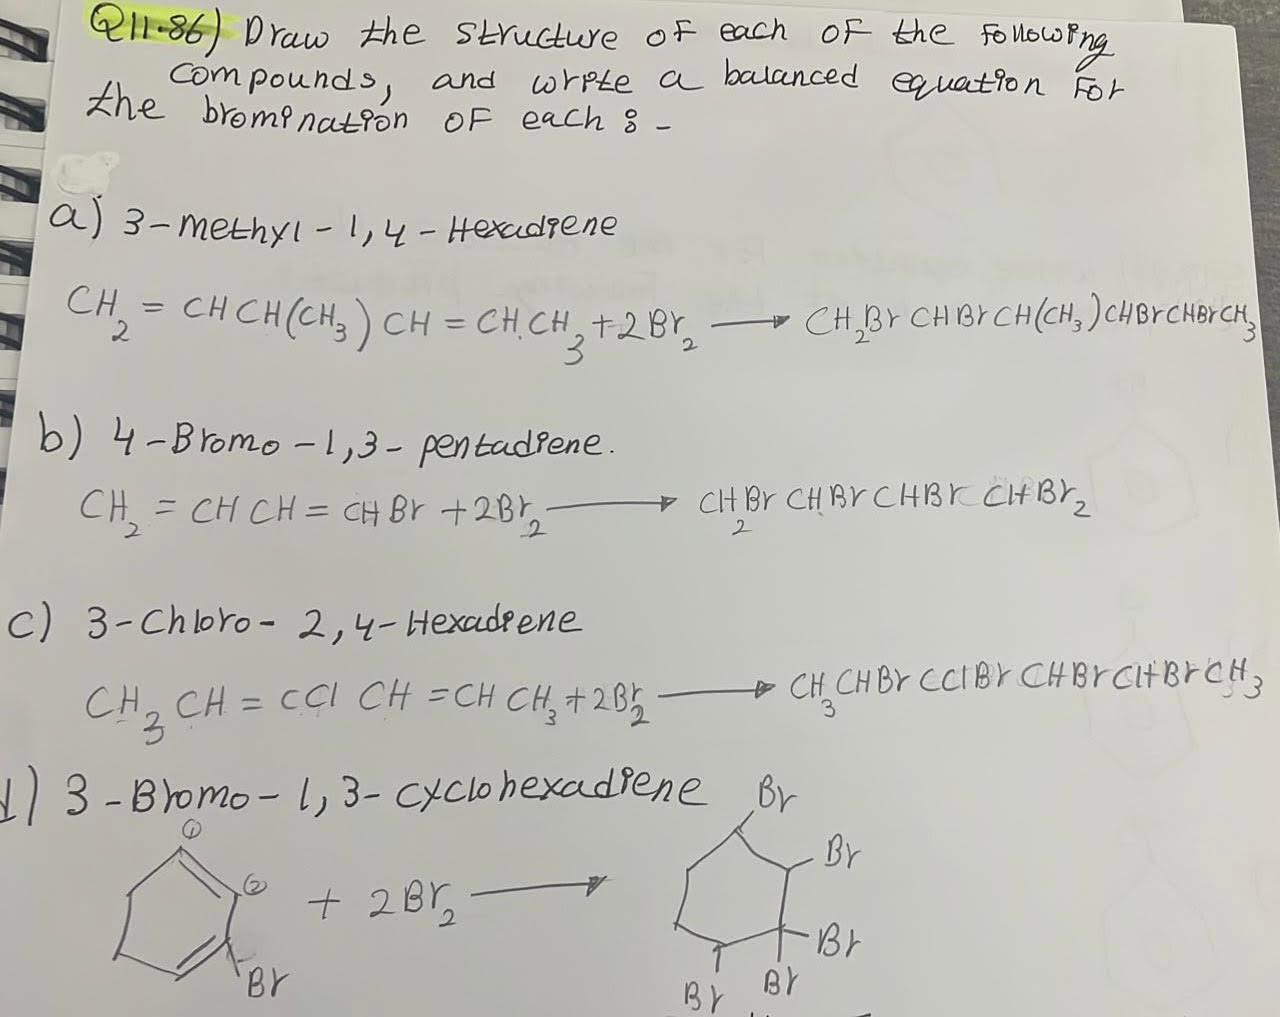 Q11.86) Draw the structure of each of the following
compounds, and write a balanced equation for
the bromination of each :-
a) 3-Methyl-1,4-Hexadiene
CH₂ = CHCH(CH₃)CH = CHCH₃ + 2Br₂ → CH₂BrCHBrCH(CH₃)CHBrCHBrCH₃
b) 4-Bromo-1,3-pentadiene.
CH₂ = CHCH = CHBr + 2Br₂ → CH₂BrCHBrCHBrCHBr₂
c) 3-Chloro-2,4-Hexadiene
CH₃CH = CCl CH = CHCH₃ + 2Br₂ → CH₃CHBrCClBrCHBrCHBrCH₃
d) 3-Bromo-1,3-cyclohexadiene
Br
①
Br
②
+ 2Br₂ →
Br
Br
Br
Br